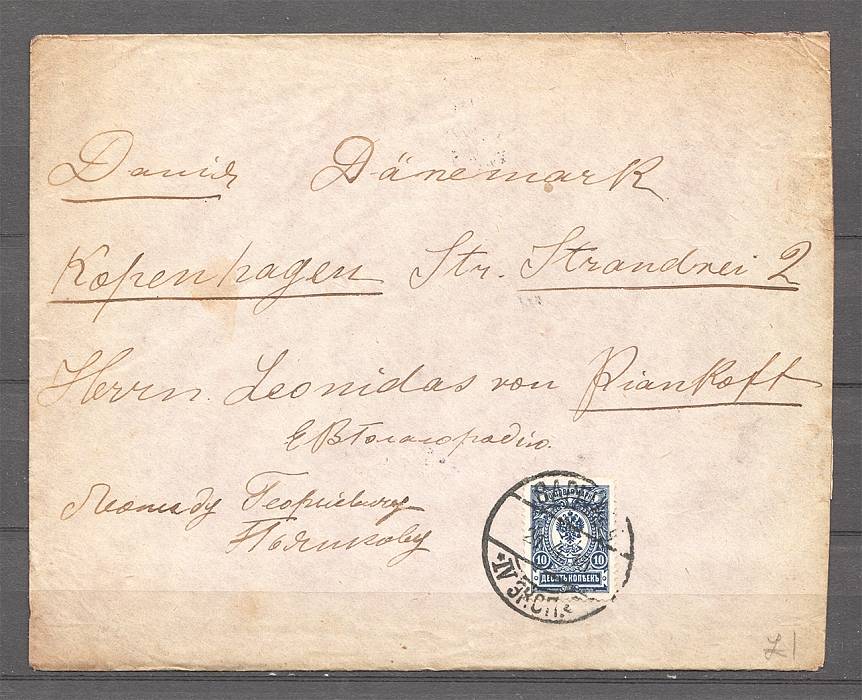 Данія Dänemark
Kopenhagen Str. Strandvei 2
Herrn Leonidas von Piankoff
Е В Благородію
Леониду Георгіевичу
Пьянкову
ВАРША
10 10
ДЕСЯТЬ КОПѢЕКЪ
IV ЭКСП.